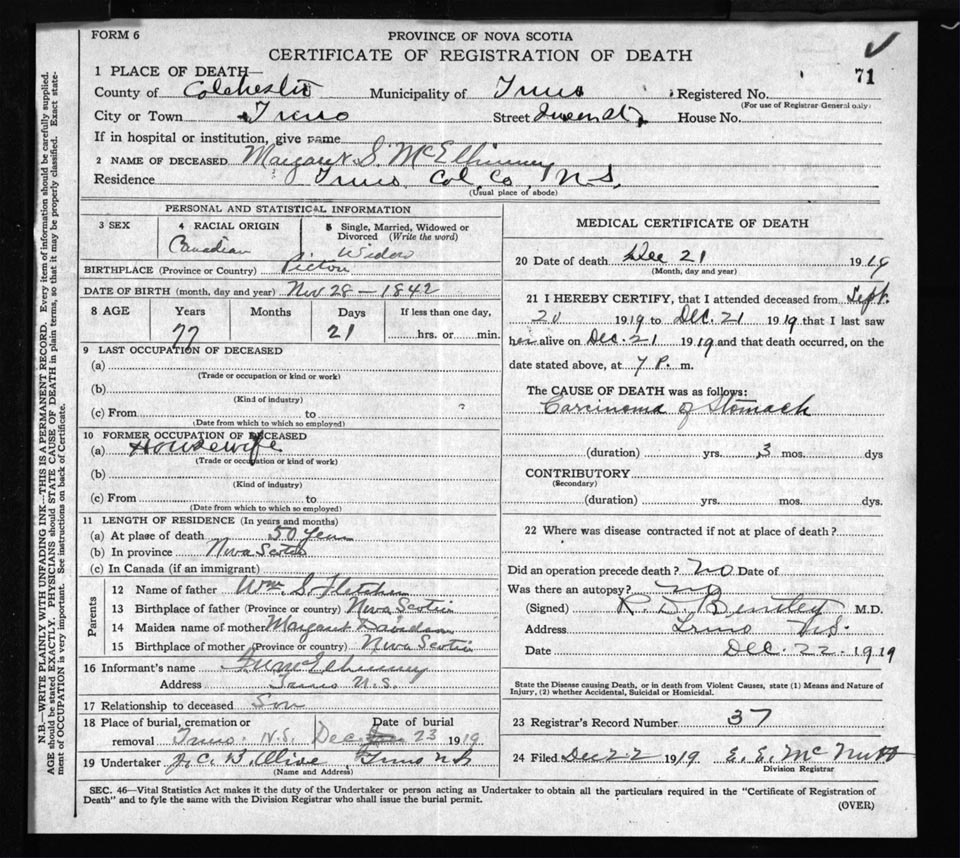 FORM 6
PROVINCE OF NOVA SCOTIA
CERTIFICATE OF REGISTRATION OF DEATH
71
1 PLACE OF DEATH—
County of Colchester Municipality of Truro Registered No.
(For use of Registrar General only)
City or Town Truro Street Queen St. House No.
If in hospital or institution, give name
2 NAME OF DECEASED Margaret S. McElhinney
Residence Truro Col. Co. N.S.
(Usual place of abode)
PERSONAL AND STATISTICAL INFORMATION
3 SEX
4 RACIAL ORIGIN
Canadian
5 Single, Married, Widowed or Divorced (Write the word)
Widow
BIRTHPLACE (Province or Country) Pictou
DATE OF BIRTH (month, day and year) Nov. 28 — 1842
8 AGE Years Months Days If less than one day,
77 21 hrs. or min.
9 LAST OCCUPATION OF DECEASED
(a)
(Trade or occupation or kind or work)
(b)
(Kind of industry)
(c) From to
(Date from which to which so employed)
10 FORMER OCCUPATION OF DECEASED
(a) Housewife
(Trade or occupation or kind of work)
(b)
(Kind of industry)
(c) From to
(Date from which to which so employed)
11 LENGTH OF RESIDENCE (In years and months)
(a) At place of death 50 Years
(b) In province Nova Scotia
(c) In Canada (if an immigrant)
Parents
12 Name of father Wm. S. Fletcher
13 Birthplace of father (Province or country) Nova Scotia
14 Maiden name of mother Margaret Davidson
15 Birthplace of mother (Province or country) Nova Scotia
16 Informant's name McElhinney
Address Truro N.S.
17 Relationship to deceased Son
18 Place of burial, cremation or removal Truro N.S.
Date of burial Dec 23 1919
19 Undertaker J. C. B. Olive Truro N S
(Name and Address)
MEDICAL CERTIFICATE OF DEATH
20 Date of death Dec 21 1919
(Month, day and year)
21 I HEREBY CERTIFY, that I attended deceased from Sept.
20 1919 to Dec. 21 1919 that I last saw
her alive on Dec. 21 1919 and that death occurred, on the
date stated above, at 7 P. m.
The CAUSE OF DEATH was as follows:
Carcinoma of Stomach
(duration) yrs. 3 mos. dys
CONTRIBUTORY
(Secondary)
(duration) yrs. mos. dys.
22 Where was disease contracted if not at place of death?
Did an operation precede death? no Date of
Was there an autopsy? no
(Signed) R. D. Bentley M.D.
Address Truro N.S.
Date Dec. 22. 1919
State the Disease causing Death, or in Death from Violent Causes, state (1) Means and Nature of
Injury, (2) whether Accidental, Suicidal or Homicidal.
23 Registrar's Record Number 37
24 Filed Dec 22 1919 E. E. McNutt
Division Registrar
SEC. 46—Vital Statistics Act makes it the duty of the Undertaker or person acting as Undertaker to obtain all the particulars required in the "Certificate of Registration of
Death" and to fyle the same with the Division Registrar who shall issue the burial permit.
(OVER)
N.B.—WRITE PLAINLY WITH UNFADING INK—THIS IS A PERMANENT RECORD. Every item of information should be carefully supplied.
AGE should be stated EXACTLY. PHYSICIANS should STATE CAUSE OF DEATH in plain terms, so that it may be properly classified. Exact state-
ment of OCCUPATION is very important. See instructions on back of Certificate.